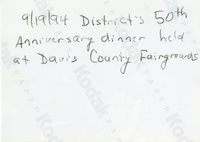 9/19/94 District's 50th
Anniversary dinner held
at Davis County Fairgrounds